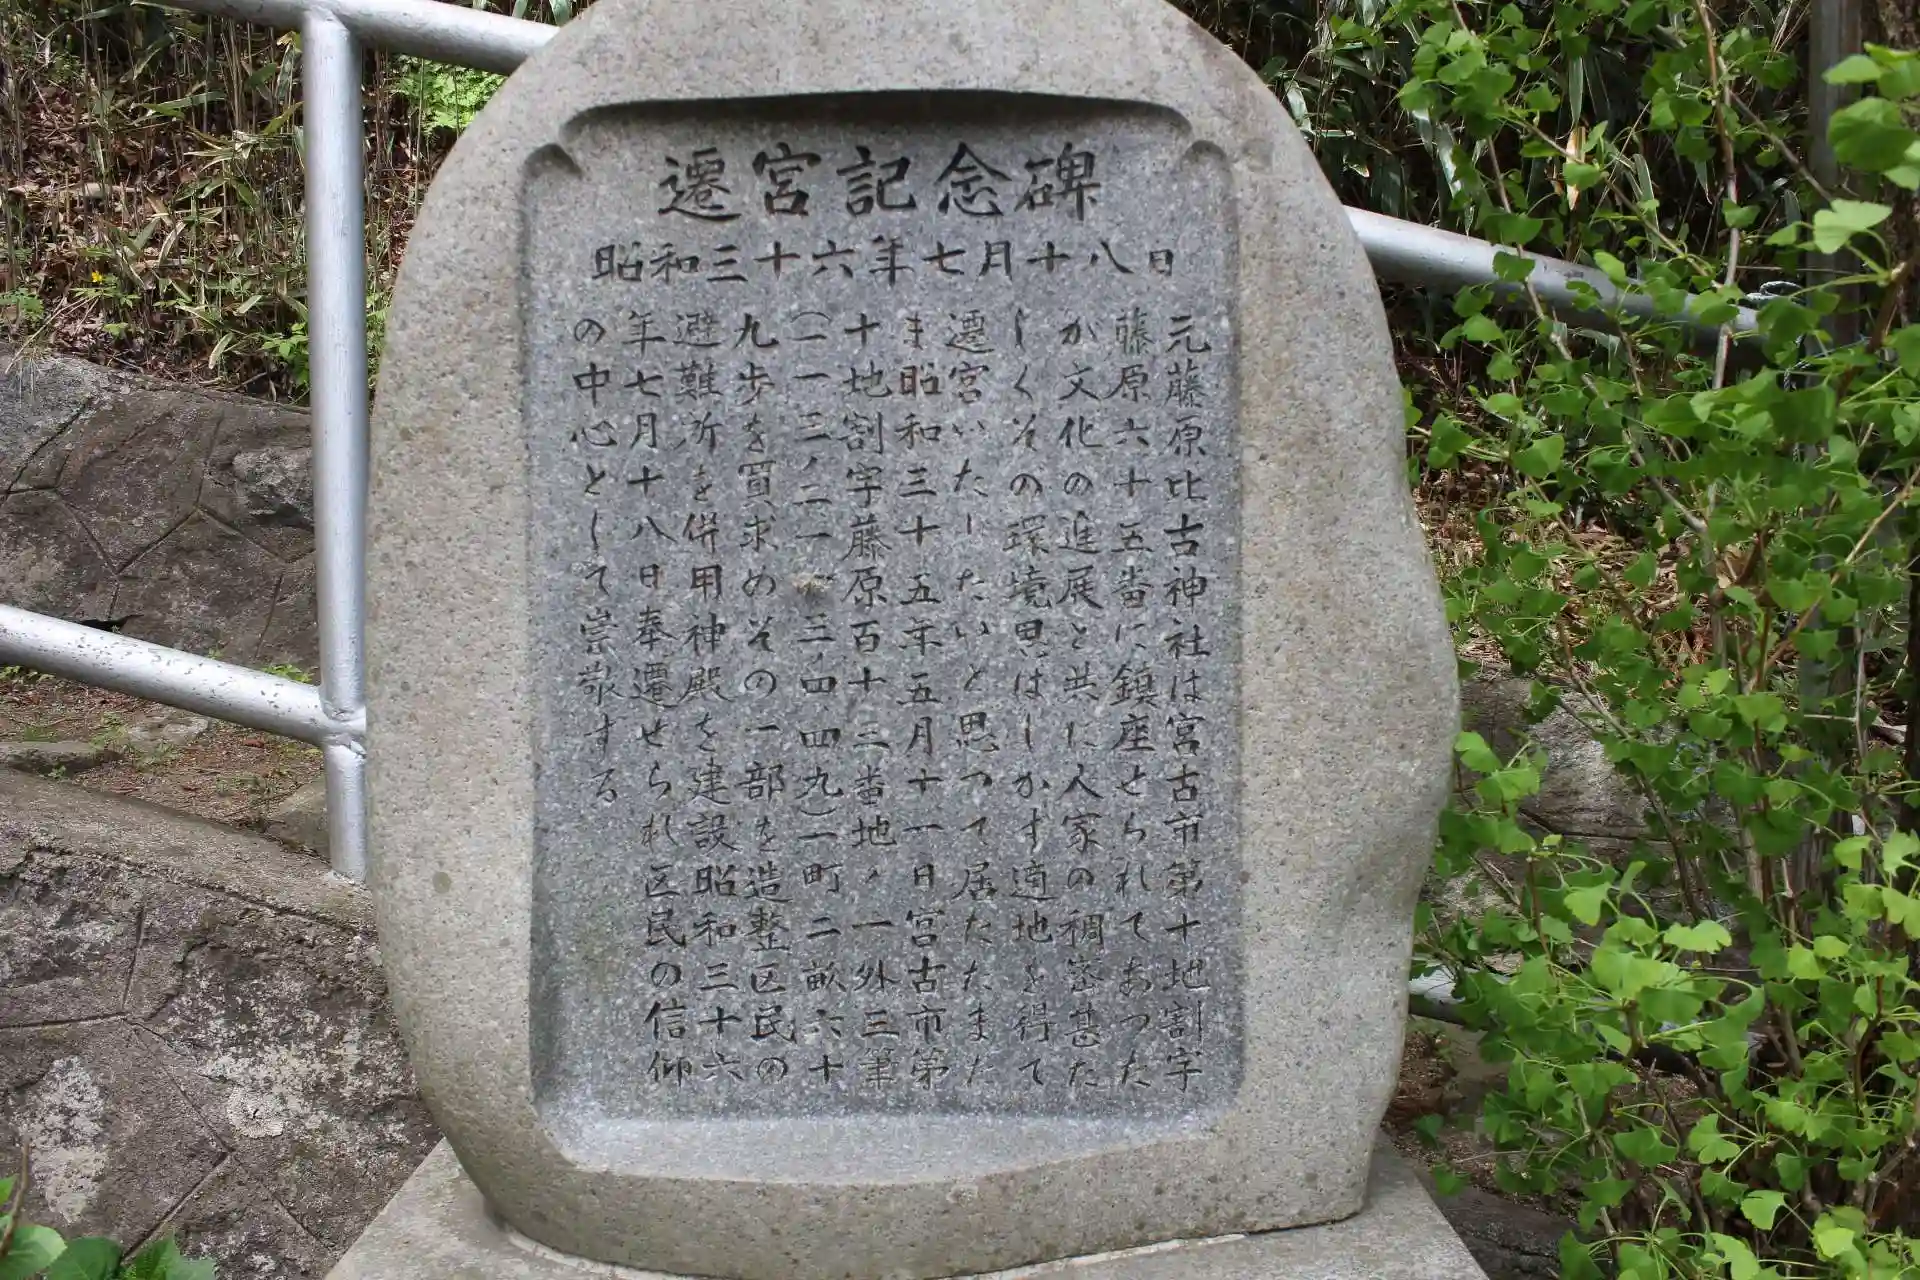 遷宮記念碑
昭和三十六年七月十八日
元藤原比古神社は宮古市第十地割字
藤原六十五番に鎮座とられてあつた
が文化の進展と共に人家の稠密甚た
しくその環境思はしかす適地を得て
遷宮いたしたいと思つて居たたまた
ま昭和三十五年五月十一日宮古市第
十地割字藤原百十三番地ノ一外三筆
(一一三ノ二一一三ノ四四九)一町二畝六十
九歩を買求めその一部を造整区民の
避難所を併用神殿を建設昭和三十六
年七月十八日奉遷せられ区民の信仰
の中心として崇敬する